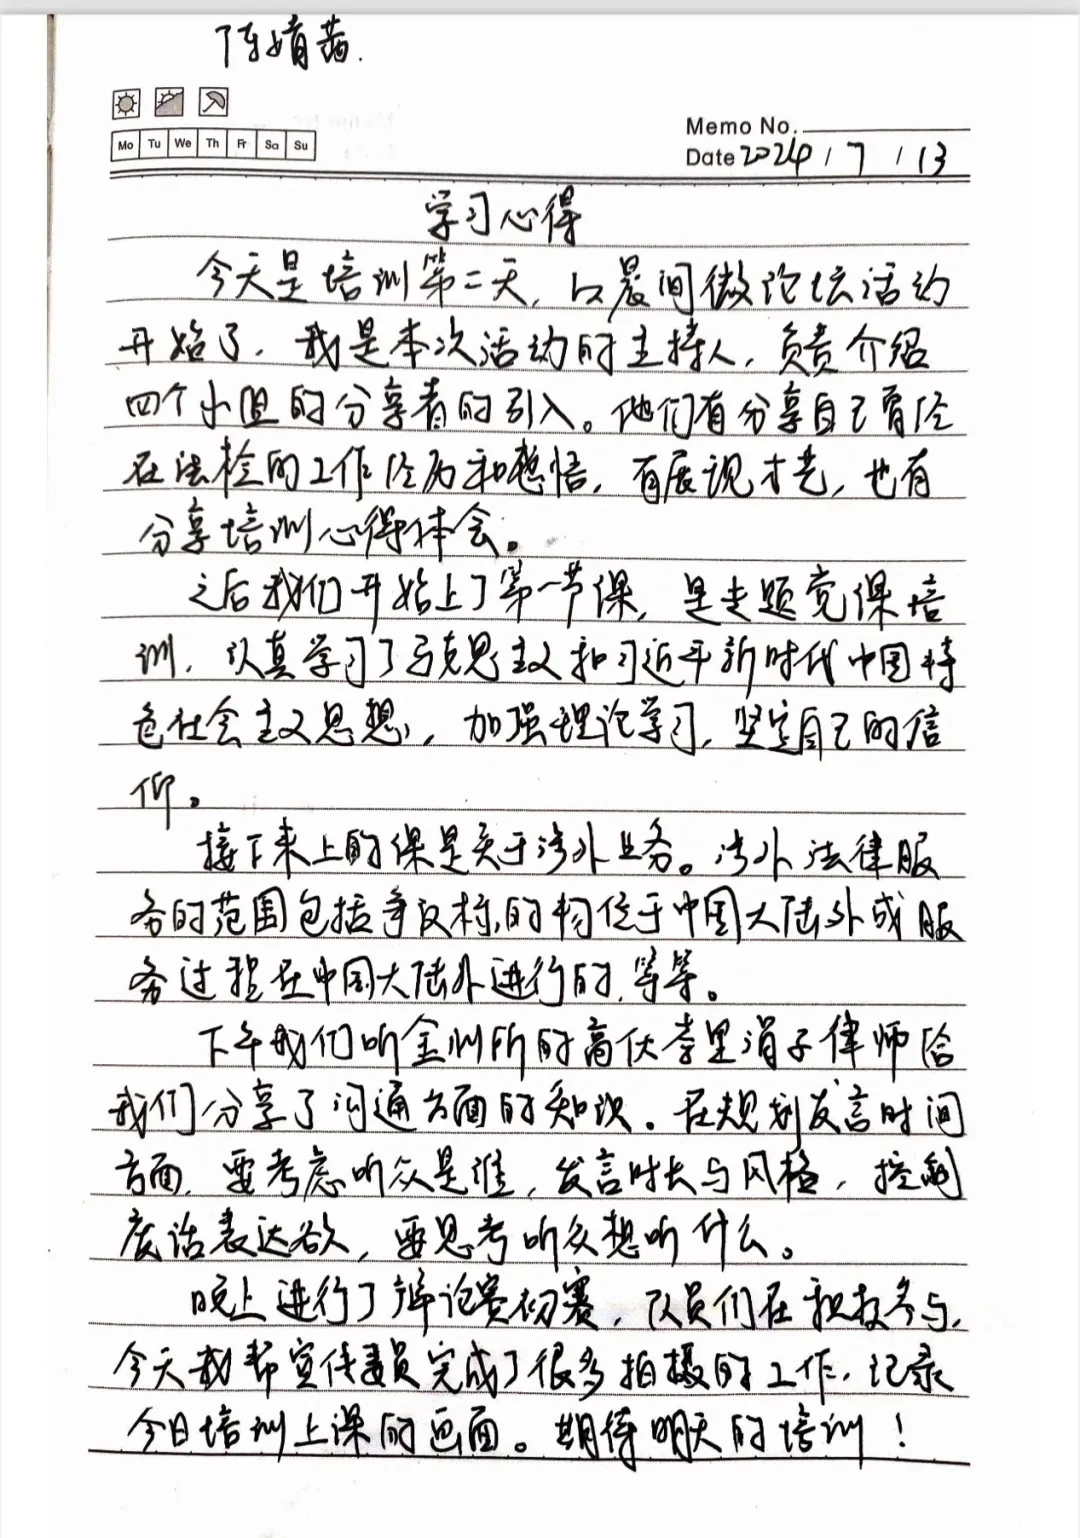 陈婧茜.
Memo No.
Mo Tu We Th Fr Sa Su
Date 2024 / 7 / 13
学习心得
今天是培训第二天，以晨间微论坛活动
开始了，我是本次活动的主持人，负责介绍
四个小组的分享者的引入。他们有分享自己曾经
在法检的工作经历和感悟，有展现才艺，也有
分享培训心得体会。
之后我们开始上了第一节课，是专题党课培
训，认真学习了马克思主义和习近平新时代中国特
色社会主义思想，加强理论学习，坚定自己的信
仰。
接下来上的课是关于涉外业务。涉外法律服
务的范围包括争议标的物位于中国大陆外或服
务过程在中国大陆外进行的，等等。
下午我们听金州所的高伙李里涓子律师给
我们分享了沟通方面的知识。在规划发言时间
方面，要考虑听众是谁，发言时长与风格，控制
废话表达欲，要思考听众想听什么。
晚上进行了辩论赛初赛，队员们在积极参与，
今天我帮宣传委员完成了很多拍摄的工作，记录
今日培训上课的画面。期待明天的培训！